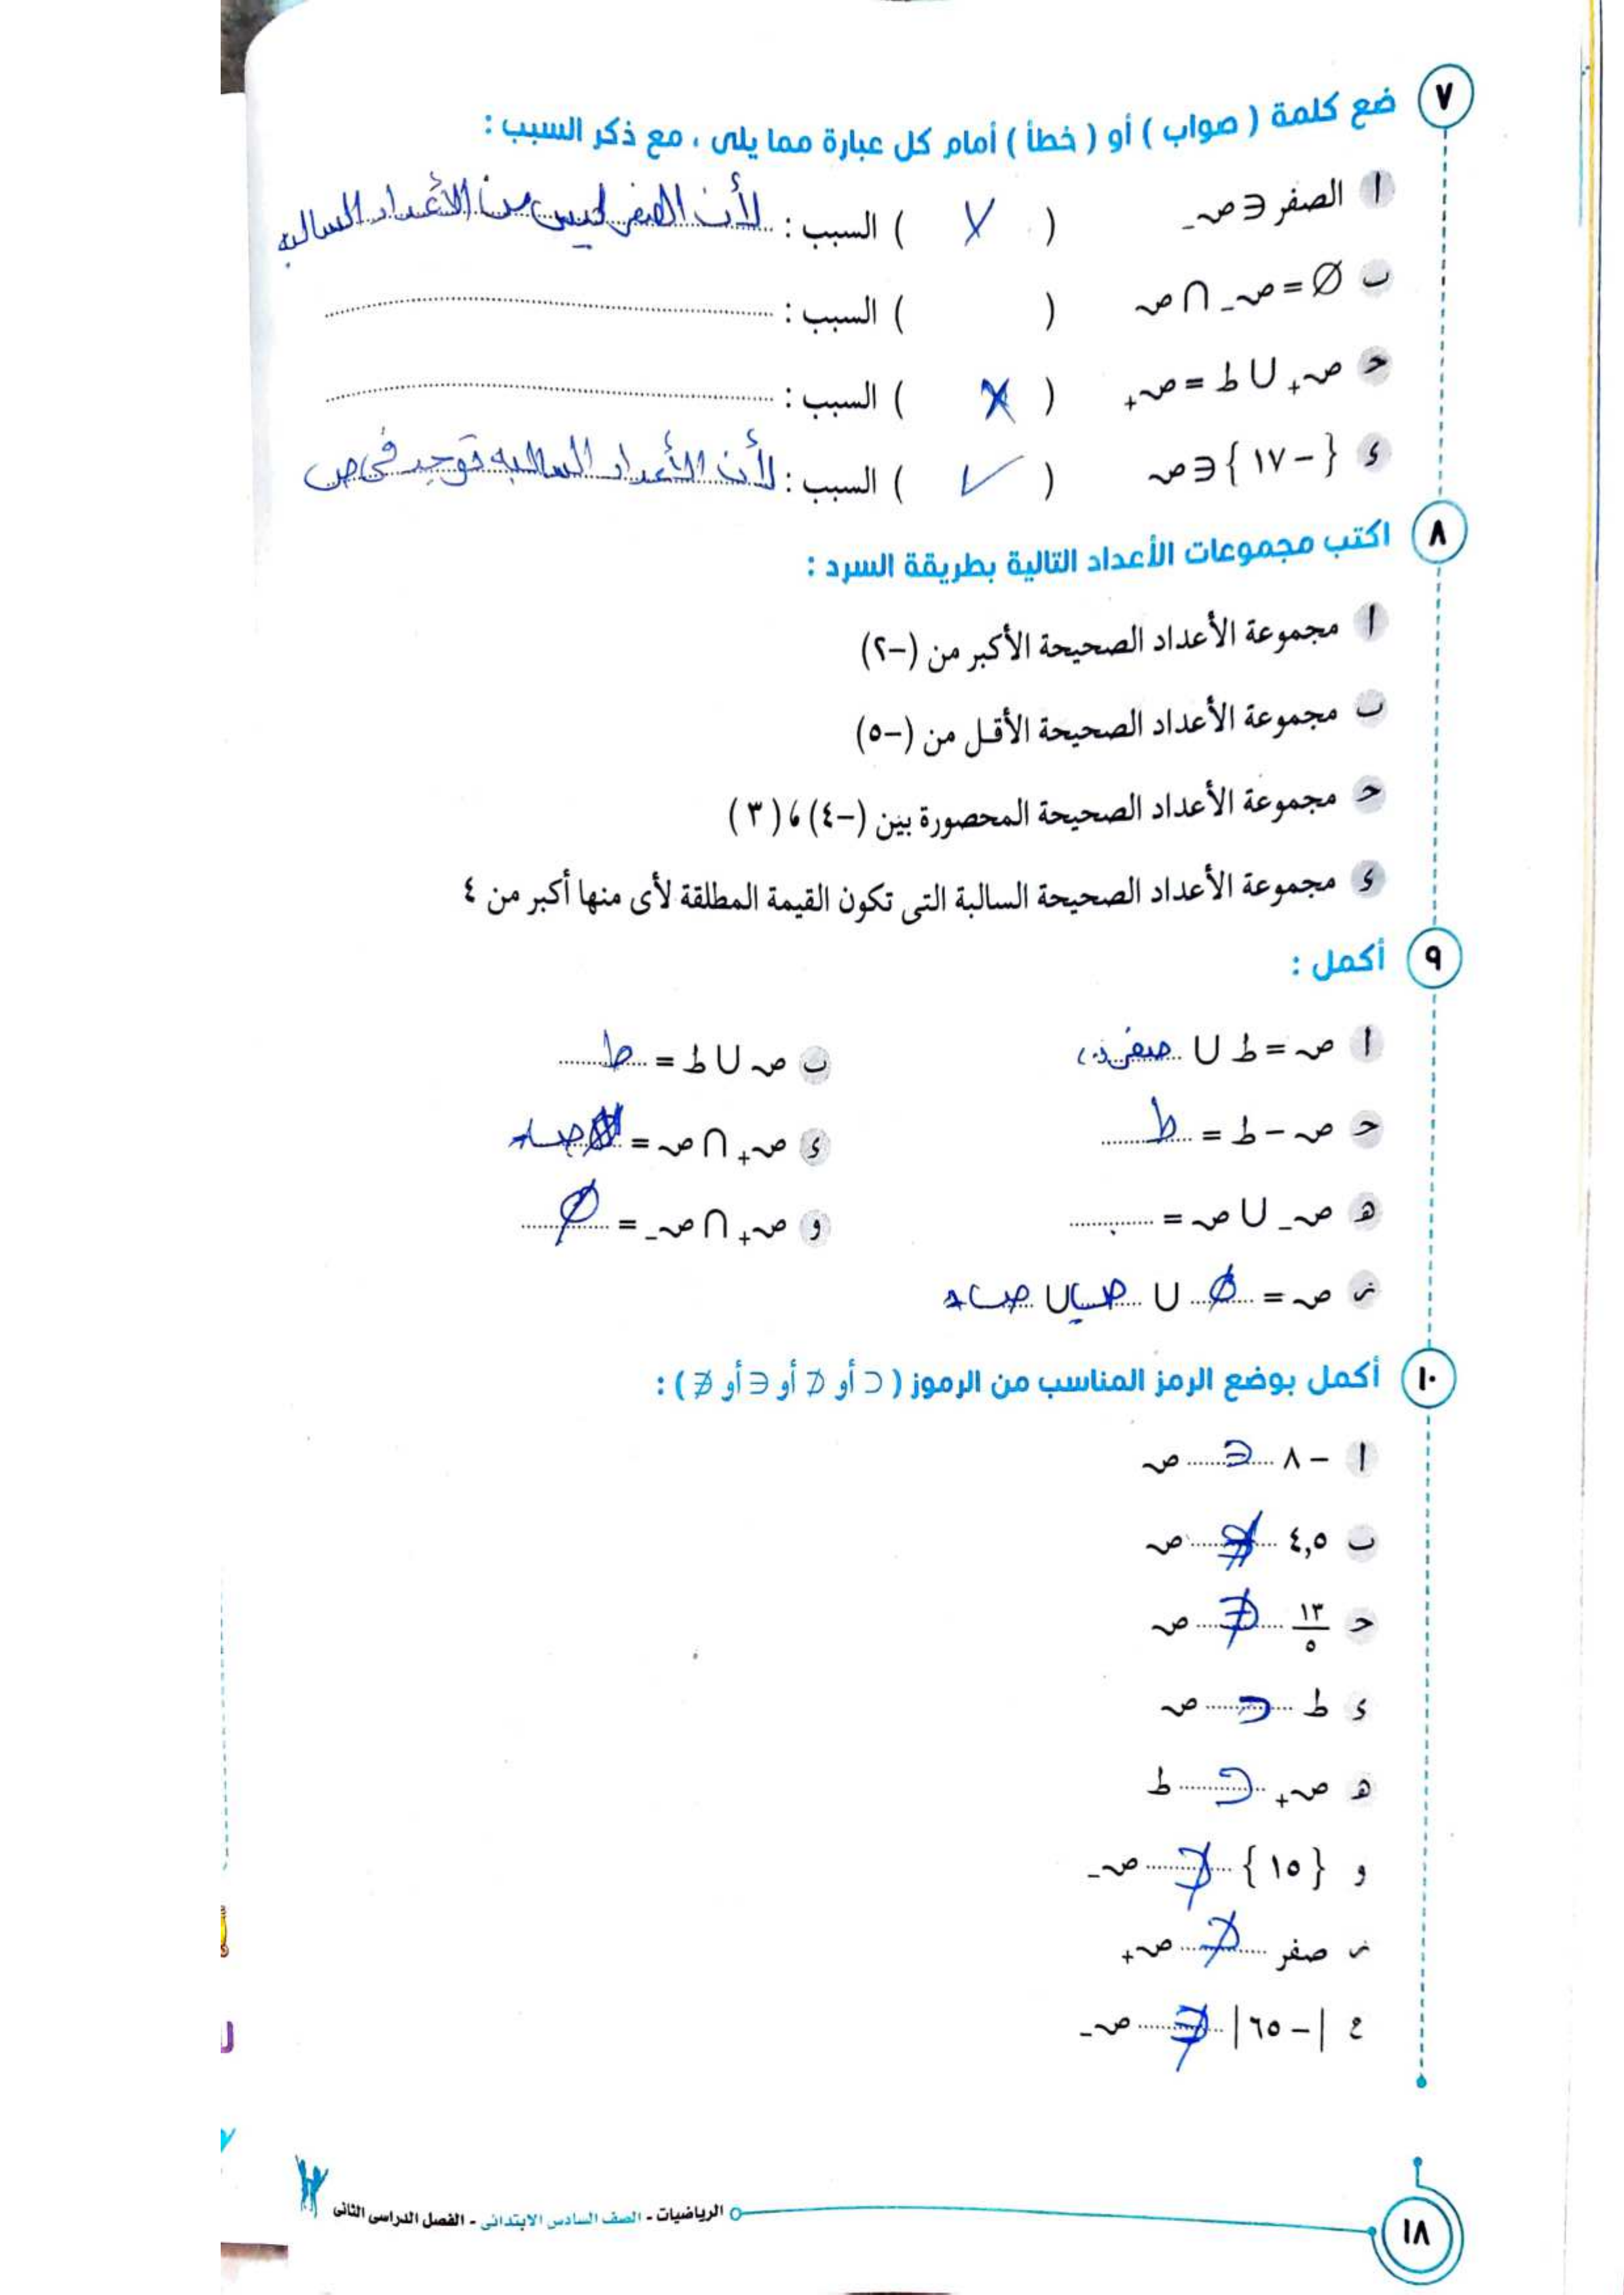 ٧ ضع كلمة ( صواب ) أو ( خطأ ) أمام كل عبارة مما يلى ، مع ذكر السبب :
ا الصفر ∈ صـ₋ ( X ) السبب : لأن الصفر ليس من الأعداد السالبه
ب ∅ = صـ₋ ∩ صـ ( ) السبب : ..........
ح صـ₊ ∪ ط = صـ₊ ( X ) السبب : ..........
ء { −١٧ } ∈ صـ ( ✓ ) السبب : لأن الأعداد السالبه توجد فى ص
٨ اكتب مجموعات الأعداد التالية بطريقة السرد :
ا مجموعة الأعداد الصحيحة الأكبر من (−٢)
ب مجموعة الأعداد الصحيحة الأقل من (−٥)
ح مجموعة الأعداد الصحيحة المحصورة بين (−٤) ، (٣)
ء مجموعة الأعداد الصحيحة السالبة التى تكون القيمة المطلقة لأى منها أكبر من ٤
٩ أكمل :
ا صـ = ط ∪ صفر ب صـ ∪ ط = ط
ح صـ − ط = ط ء صـ₊ ∩ صـ = صـ₊
ه صـ₋ ∪ صـ = .......... و صـ₊ ∩ صـ₋ = ∅
ز صـ = ∅ ∪ صـ₋ ∪ صـ₊
١٠ أكمل بوضع الرمز المناسب من الرموز ( ⊂ أو ⊄ أو ∈ أو ∉ ) :
ا −٨ ∈ صـ
ب ٤,٥ ∉ صـ
ح ١٣/٥ ∉ صـ
ء ط ⊂ صـ
ه صـ₊ ⊂ ط
و { ١٥ } ⊄ صـ₋
ز صفر ⊄ صـ₊
ح |−٦٥| ∉ صـ₋
الرياضيات - الصف السادس الابتدائى - الفصل الدراسى الثانى
١٨